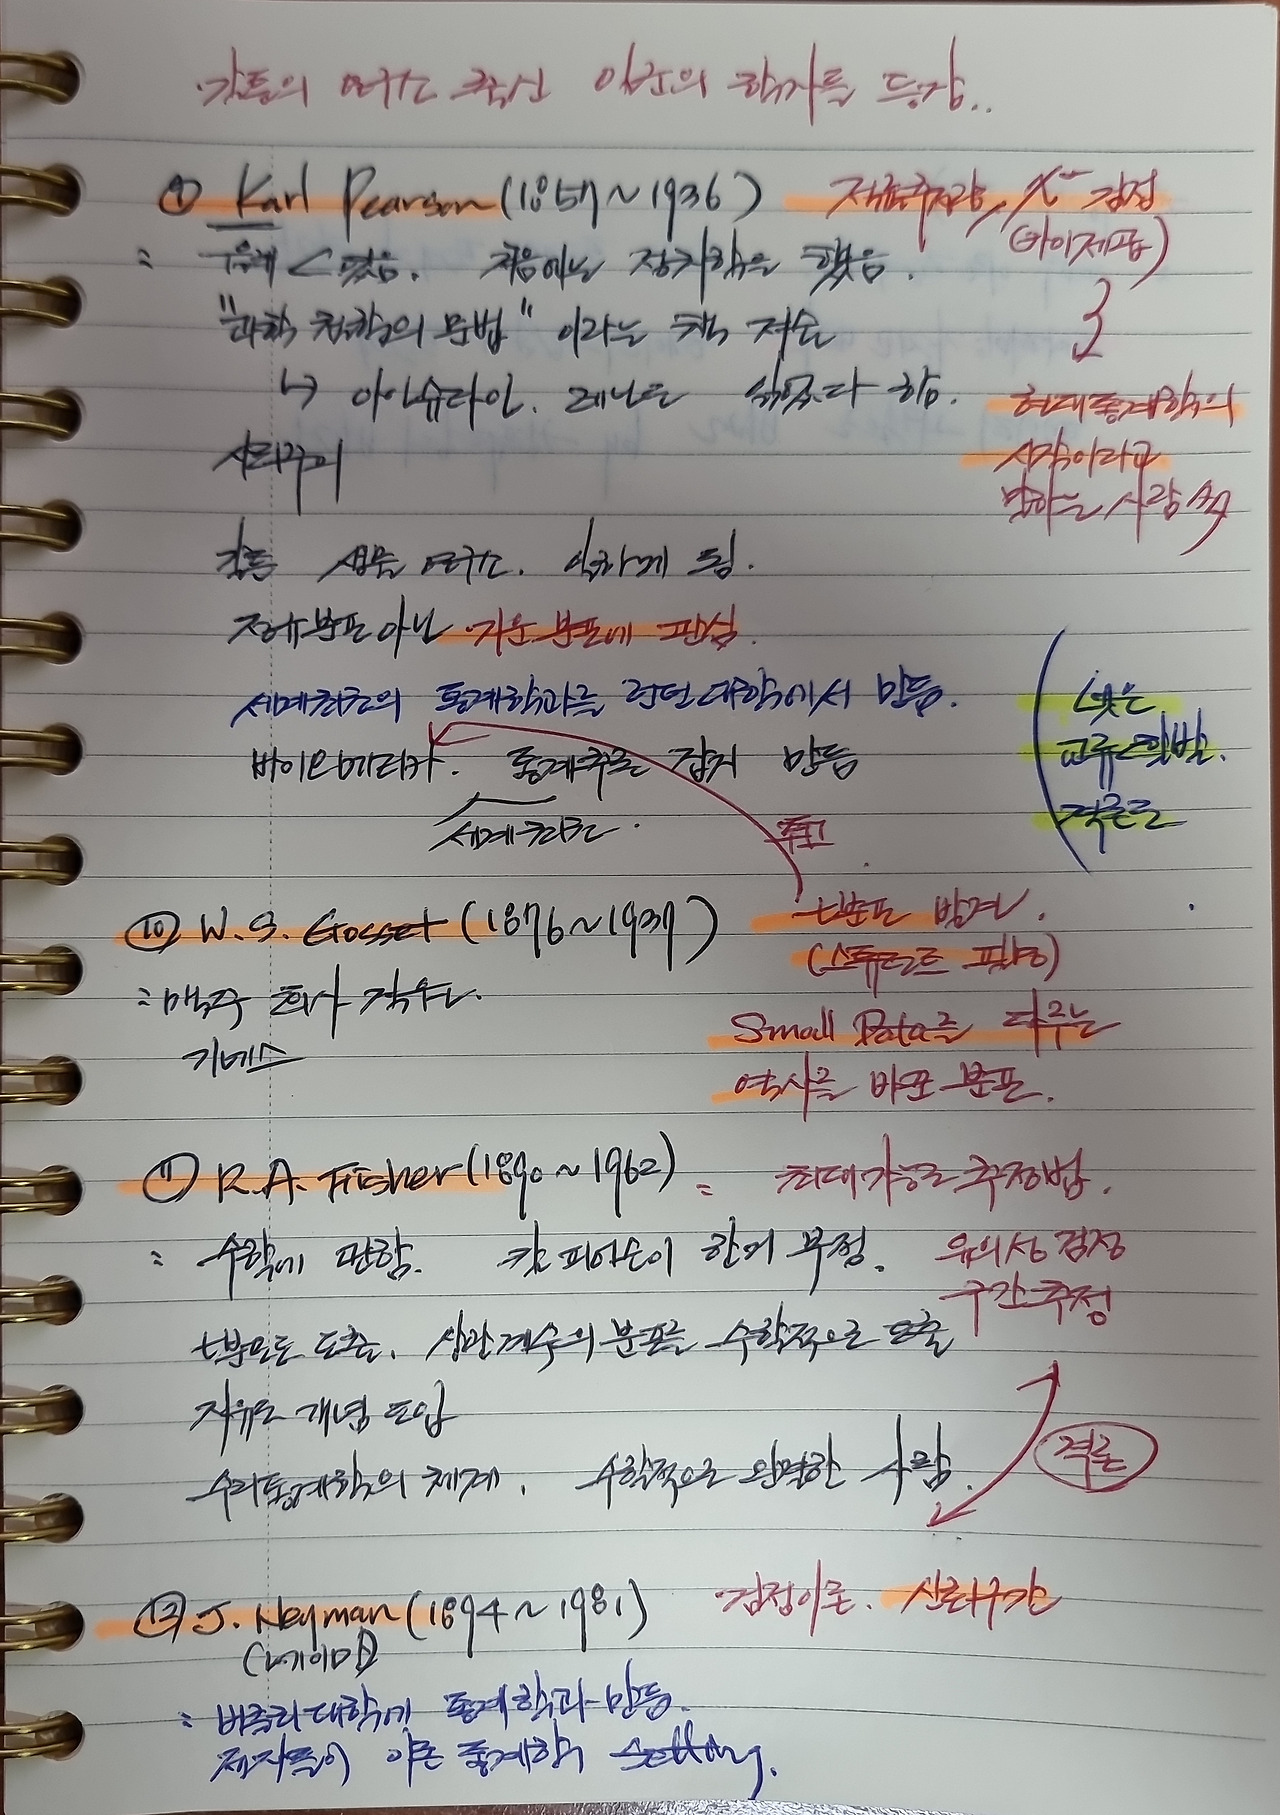 갈톤의 연구소 출신 일군의 학자들 등장..
⑨ Karl Pearson (1857~1936) 적률추정량, χ² 검정
(카이제곱)
처음에는 정치학을 했음.
"과학 철학의 문법" 이라는 책 저술
↳ 아인슈타인, 레닌도 읽었다 함.
현대통계학의
시작이라고
말하는 사람 多
갈톤 생물 연구소. 일하게 됨.
정규분포 아닌 기운 분포에 관심.
세계최초의 통계학과를 런던대학에서 만듦.
바이오메트리카. 통계학 잡지 만듦
세계최초.
넷은
교류 활발.
격론도
투고
⑩ W. S. Gosset (1876~1937) t분포 발견.
(스튜던트 필명)
= 맥주 회사 직원.
기네스
Small Data를 다루는
역사를 바꾼 분포.
⑪ R.A. Fisher (1890~1962) = 최대가능도 추정법.
= 수학에 관함. 칼 피어슨이 한거 부정. 유의성 검정
구간추정
t분포도 도출. 상관계수의 분포를 수학적으로 도출
자유도 개념 도입
수리통계학의 체계. 수학적으로 완벽한 사람.
격론
⑫ J. Neyman (1894~1981) 검정이론. 신뢰구간
(네이만)
= 버클리대학에 통계학과 만듦.
제자들이 이론 통계학 setting.